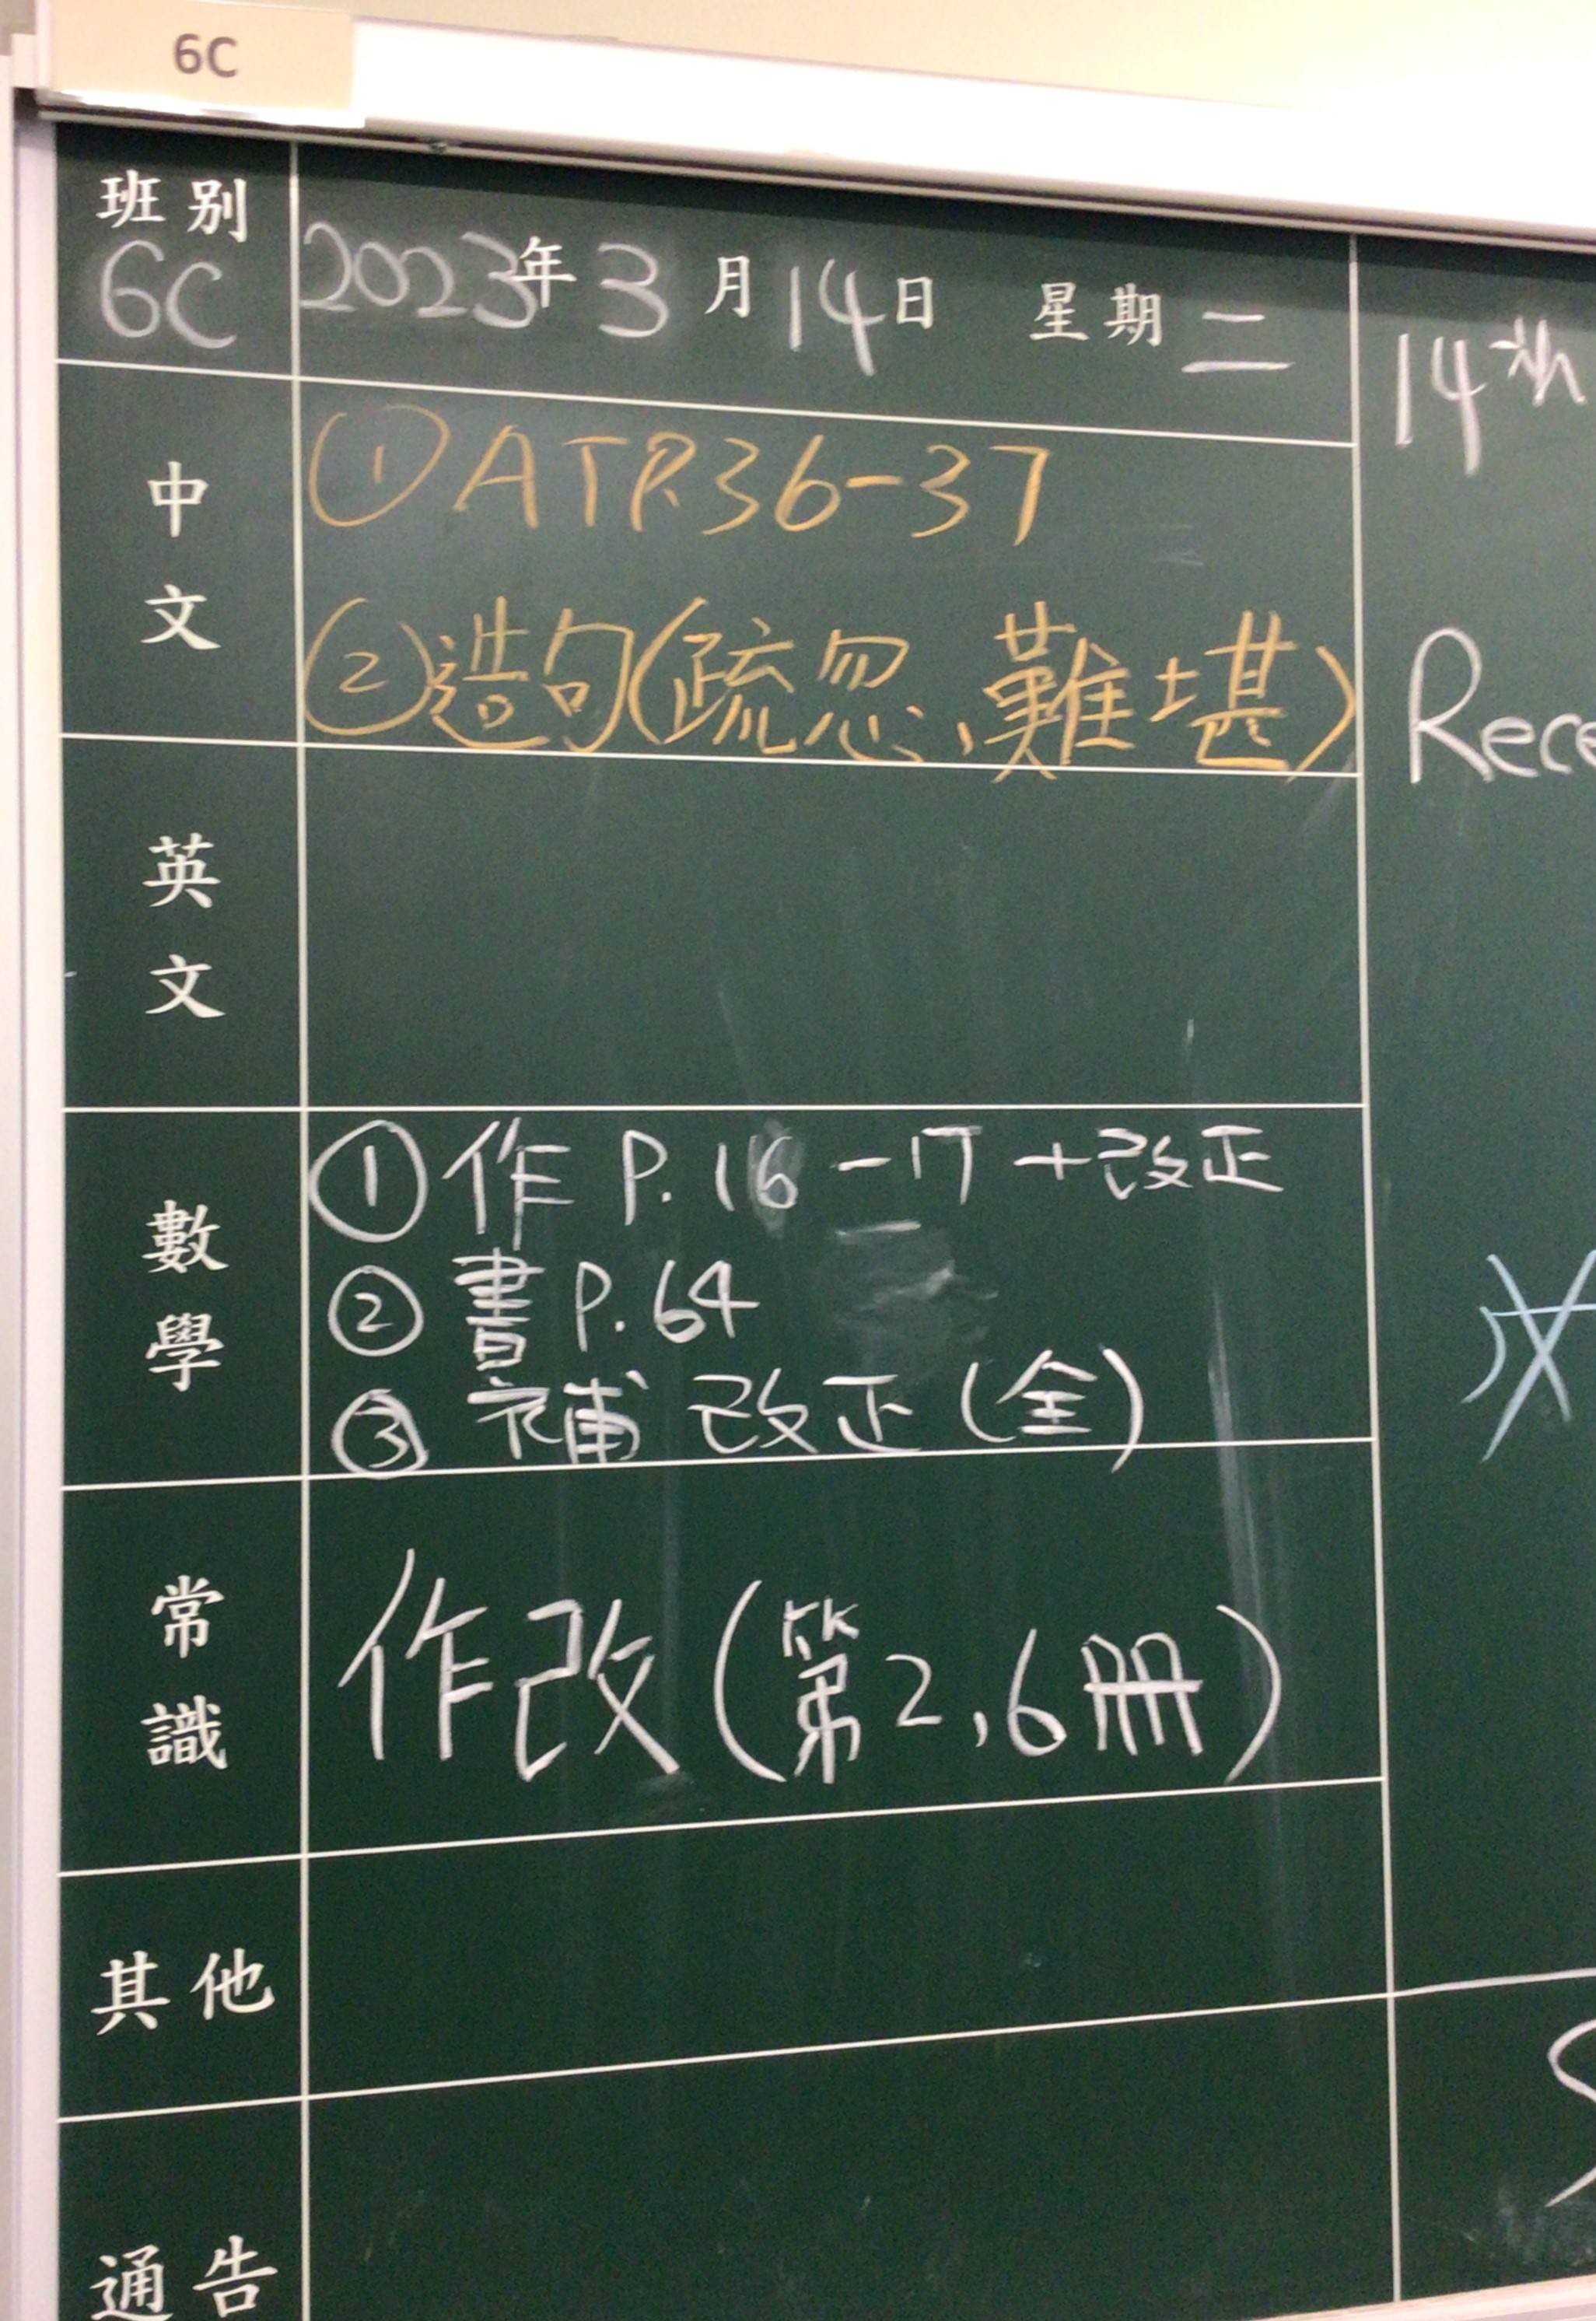 6C
班別
6C
2023年3月14日 星期二
中文
①ATP.36-37
②造句(疏忽、難堪)
英文
數學
①作 P.16-17+改正
②書 P.64
③補改正(全)
常識
作改(第2,6冊)
其他
通告
14th